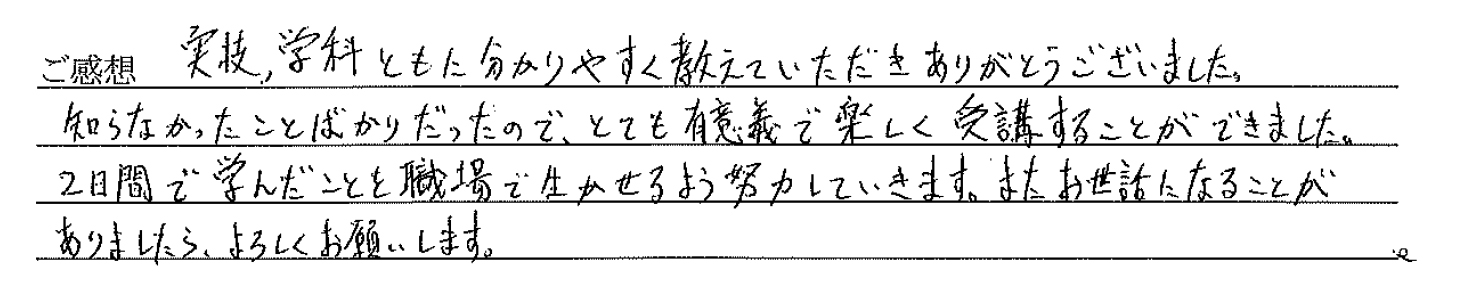 ご感想 実技,学科ともに分かりやすく教えていただきありがとうございました。
知らなかったことばかりだったので、とても有意義で楽しく受講することができました。
2日間で学んだことを職場で生かせるよう努力していきます。またお世話になることが
ありましたら、よろしくお願いします。